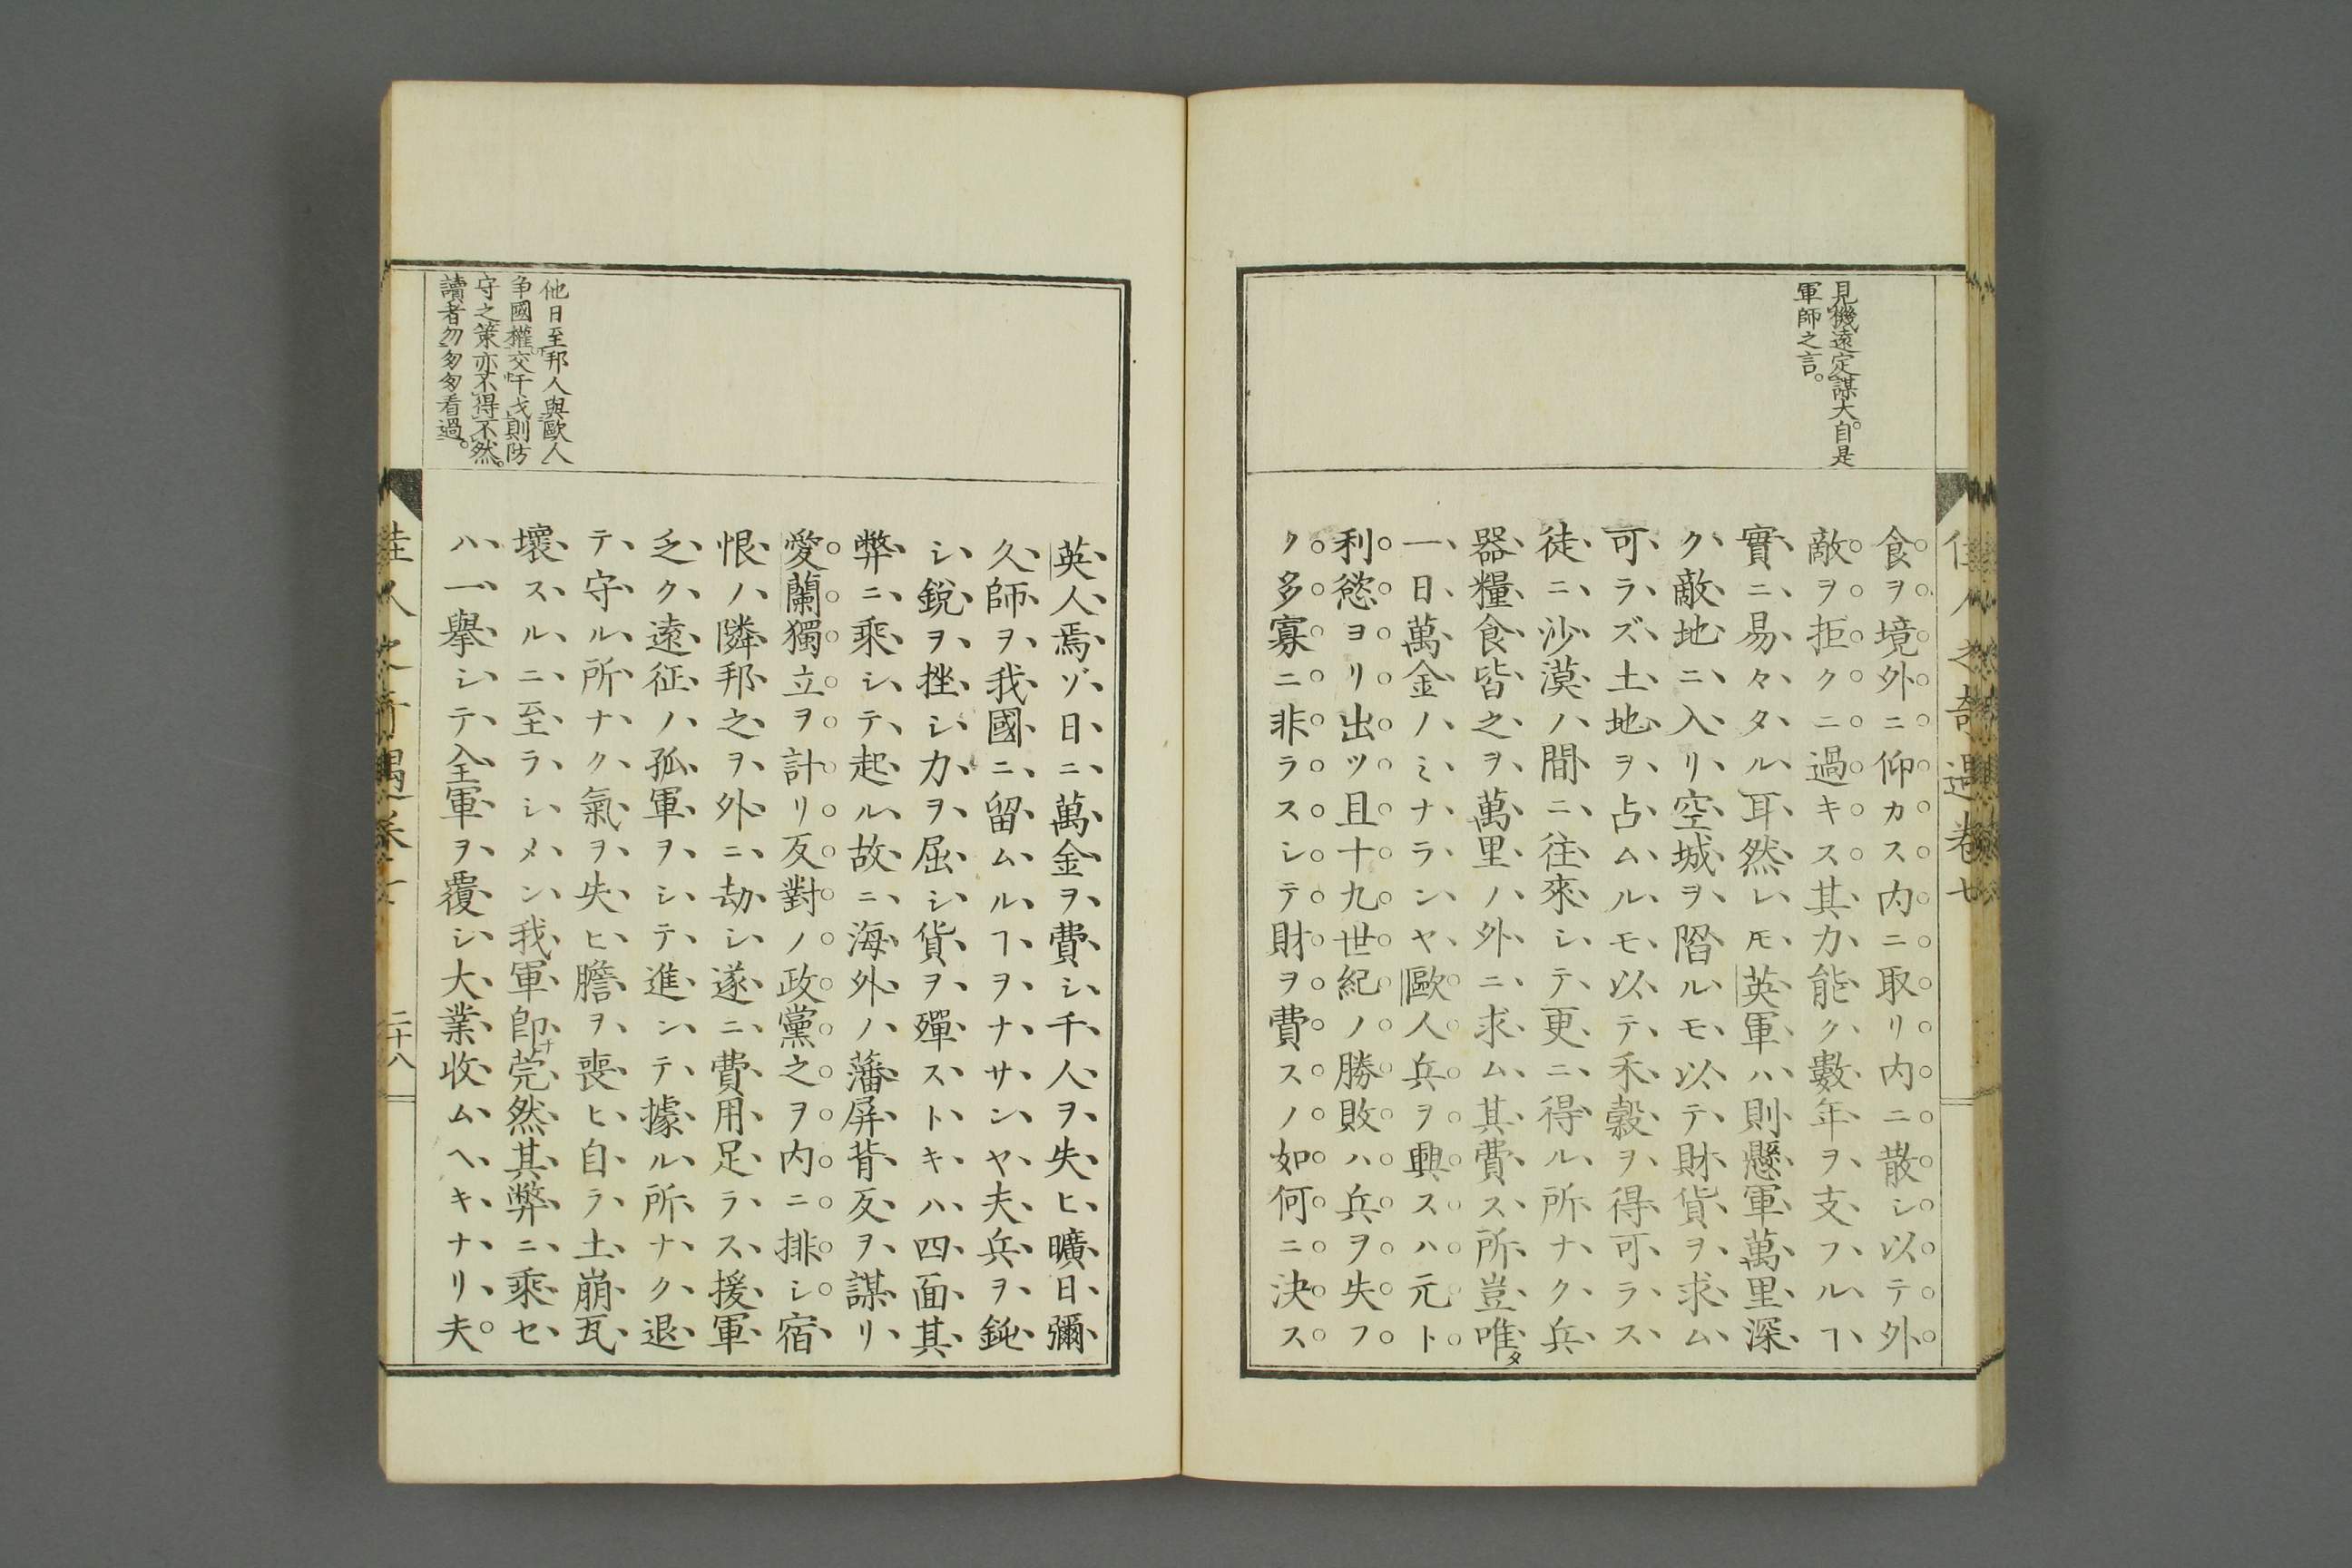 見機遠定謀大。自是
軍師之言。
佳人之奇遇卷七
食ヲ境外ニ仰カス内ニ取リ内ニ散シ以テ外
敵ヲ拒クニ過キス其力能ク數年ヲ支フルヿ
實ニ易々タル耳然レ𪜈英軍ハ則懸軍萬里深
ク敵地ニ入リ空城ヲ陷ルモ以テ財貨ヲ求ム
可ラズ土地ヲ占ムルモ以テ禾穀ヲ得可ラス
徒ニ沙漠ノ間ニ往來シテ更ニ得ル所ナク兵
器糧食皆之ヲ萬里ノ外ニ求ム其費ス所豈唯タ
一日萬金ノミナランヤ歐人兵ヲ興スハ元ト
利慾ヨリ出ツ且十九世紀ノ勝敗ハ兵ヲ失フ
ク多寡ニ非ラスシテ財ヲ費スノ如何ニ決ス
他日至邦人與歐人
争國權交干戈則防
守之策亦不得不然。
讀者勿匆匆看過。
英人焉ゾ日ニ萬金ヲ費シ千人ヲ失ヒ曠日彌
久師ヲ我國ニ留ムルヿヲナサンヤ夫兵ヲ鈍
シ鋭ヲ挫シ力ヲ屈シ貨ヲ殫ストキハ四面其
弊ニ乘シテ起ル故ニ海外ノ藩屏背反ヲ謀リ
愛蘭獨立ヲ計リ反對ノ政黨之ヲ内ニ排シ宿
恨ノ隣邦之ヲ外ニ劫シ遂ニ費用足ラス援軍
乏ク遠征ノ孤軍ヲシテ進ンテ據ル所ナク退
テ守ル所ナク氣ヲ失ヒ膽ヲ喪ヒ自ラ土崩瓦
壞スルニ至ラシメン我軍即チ莞然其弊ニ乘セ
ハ一擧シテ全軍ヲ覆シ大業收ムヘキナリ夫
佳人之奇遇卷七
二十八